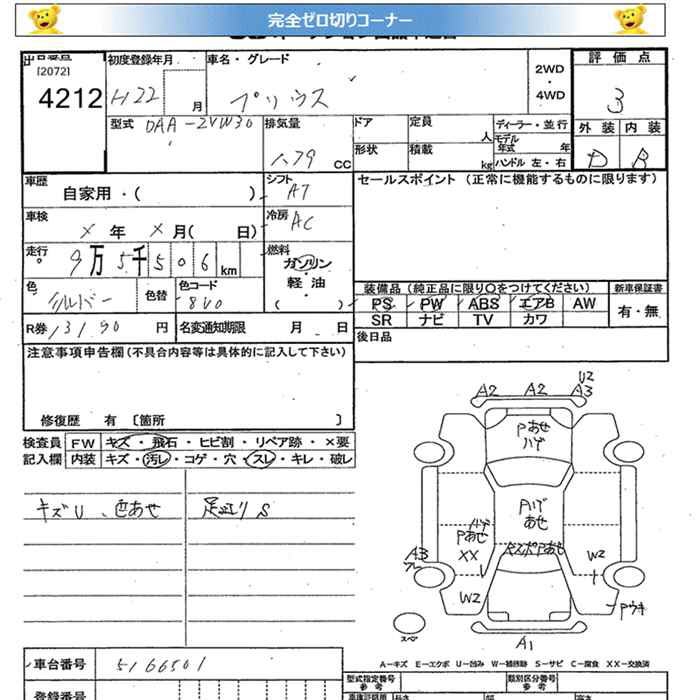 完全ゼロ切りコーナー
[2072]
4212
初度登録年月
H22 月
車名・グレード
プリウス
2WD
・
4WD
評価点
3
外装 内装
D B
型式 DAA-ZVW30
排気量
1.79 CC
ドア
定員 人
形状
積載 kg
ディーラー・並行
モデル年式 年
ハンドル 左・右
車歴
自家用・( )
シフト
AT
セールスポイント (正常に機能するものに限ります)
車検
X 年 X 月( 日)
冷房
AC
走行
9万5千506km
燃料
ガソリン
・
軽油
( )
色
シルバー
色替
色コード
8V0
装備品 (純正品に限り〇をつけてください)
新車保証書
PS PW ABS エアB AW
SR ナビ TV カワ
有・無
R券 13190 円
名変通知期限 月 日
後日品
注意事項申告欄 (不具合内容等は具体的に記入して下さい)
修復歴 有 〔箇所 〕
検査員記入欄
FW キズ・飛石・ヒビ割・リペア跡・×要
内装 キズ・汚レ・コゲ・穴・スレ・キレ・破レ
キズU、色あせ
足廻りS
U2
A2 A2 A3
Pあせ
ハゲ
Pハゲ
あせ
ハゲ
Pあせ
XX
A3
W2
W2
Pウキ
スペ
A1
A-キズ E-エクボ U-凹み W-補修跡 S-サビ C-腐食 XX-交換済
車台番号 5166501
登録番号
型式指定番号
参考
類別区分番号
参考